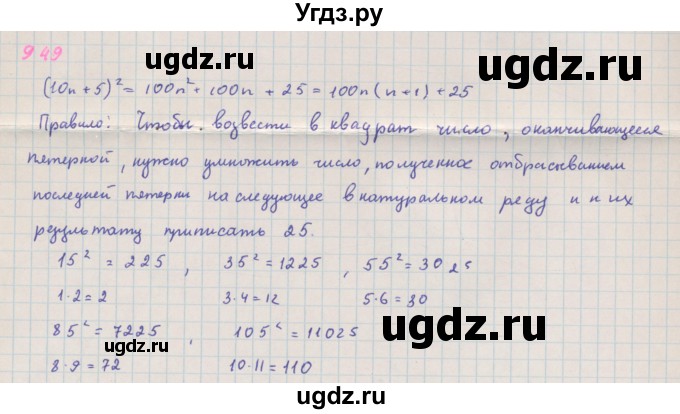 Угдз.ру
949
ugdz.ru
(10n + 5)² = 100n² + 100n + 25 = 100n(n+1) + 25
Правило: Чтобы возвести в квадрат число, оканчивающееся
пятеркой, нужно умножить число, полученное отбрасыванием
последней пятерки на следующее в натуральном ряду и к их
результату приписать 25.
15² = 225, 35² = 1225, 55² = 3025
1·2=2 3·4=12 5·6=30
85² = 7225, 105² = 11025
8·9=72 10·11=110
ugdz.ru ugdz.ru
ugdz.ru ugdz.ru ugdz.ru
ugdz.ru ugdz.ru
ugdz.ru ugdz.ru